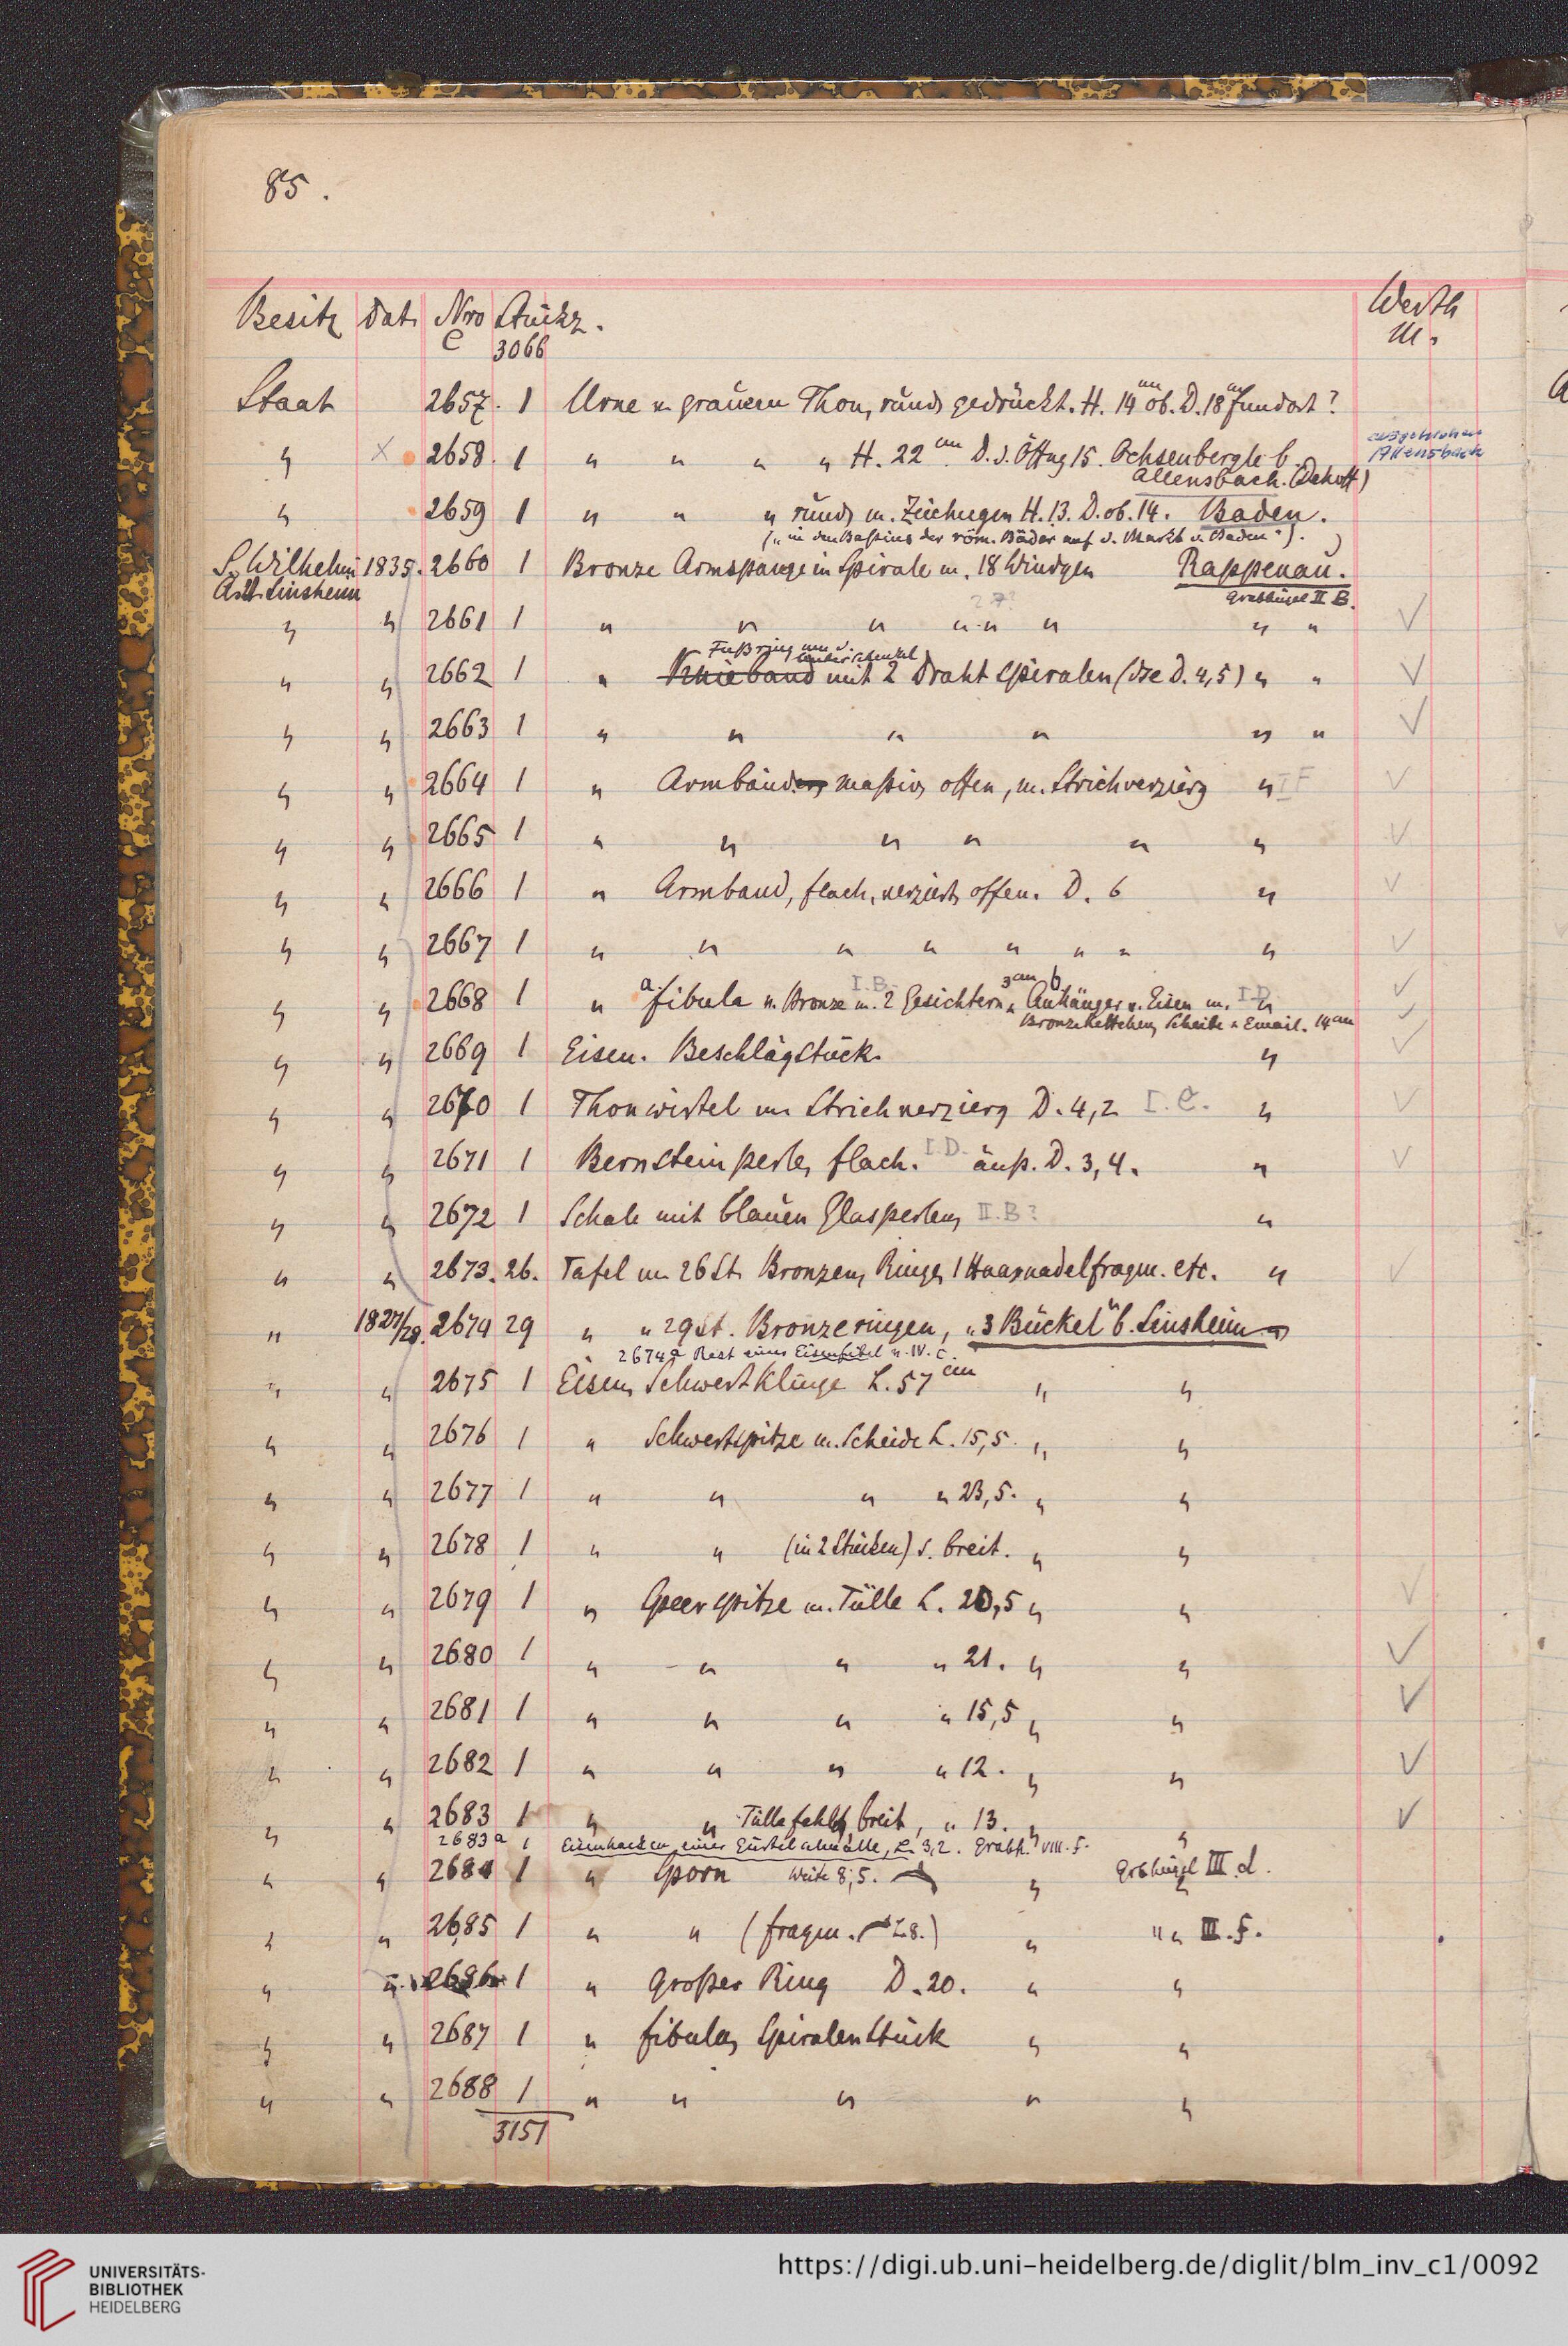 85.
Besitz Dat. Nro Stückz. Werth
C 3066 M.
Staat 2657. 1 Urne v. grauem Thon, rund, gedrückt. H. 14 cm ob. D. 18 cm Fundort?
" X 2658. 1 " " " " H. 22 cm. D. d. Öffng 15. Ochsenbergle b. ausgeliehen
Allensbach. (Dehoff) Allensbach
" 2659 1 " " " rund, m. Zeichngen H. 13. D. ob. 14. Baden.
(" in den Bassins der röm. Bäder auf d. Markt v. Baden").
S. Wilhelmi 1835. 2660 1 Bronze Armspange in Spirale m. 18 Windgen Rappenau.
Sinsheim Grabhügel II B.
" " 2661 1 " " " " " " " "
Fußring um d.
Unterschenkel
" " 2662 1 " Knieband mit 2 Drahtspiralen (dse D. 4,5) " "
" " 2663 1 " " " " " "
" " 2664 1 " Armband, massiv, offen, m. Strichverzierg " I F
" " 2665 1 " " " " " "
" " 2666 1 " Armband, flach, verziert, offen. D. 6 "
" " 2667 1 " " " " " " " "
" " 2668 1 " a. Fibula v. Bronze m. 2 Gesichtern I.B. 3 cm b Anhänger v. Eisen m. I.D. "
Bronzekettchen, Scheibe v. Email. 14 cm
" " 2669 1 Eisen. Beschlägstück. "
" " 2670 1 Thonwirtel m. Strichverzierg D. 4,2 I. C. "
" " 2671 1 Bernsteinperle, flach. I.D. äuß. D. 3,4. "
" " 2672 1 Schale mit blauen Glasperlen, II.B? "
" " 2673. 26. Tafel m. 26 St. Bronzen, Ringe, 1 Haarnadelfragm. etc. "
" 1827/28. 2674 29 " " 29 St. Bronzeringen, "3 Bückel" b. Sinsheim
2674 a Rest einer Eisenfibel n. IV. c.
" " 2675 1 Eisen, Schwertklinge L. 57 cm " "
" " 2676 1 " Schwertspitze m. Scheide L. 15,5. " "
" " 2677 1 " " " " 23,5. " "
" " 2678 1 " " (in 2 Stücken) s. breit. " "
" " 2679 1 " Speerspitze m. Tülle L. 20,5 " "
" " 2680 1 " " " " 21. " "
" " 2681 1 " " " " 15,5 " "
" " 2682 1 " " " " 12. " "
" " 2683 1 " " Tülle fehlt, breit, " 13. " "
2683 a 1 Eisenhacken einer Gürtelschnalle, L. 3,2. Grabh. VIII. F.
" " 2684 1 " Sporn Weite 8,5. " Grbhügel III. d.
" " 2685 1 " " (fragm. L. 8.) " " " III. F.
" " 2686 1 " Großer Ring D. 20. " "
" " 2687 1 " Fibula, Spiralenstück " "
" " 2688 1 " " " " "
3151
UNIVERSITÄTS-
BIBLIOTHEK
HEIDELBERG
https://digi.ub.uni-heidelberg.de/diglit/blm_inv_c1/0092